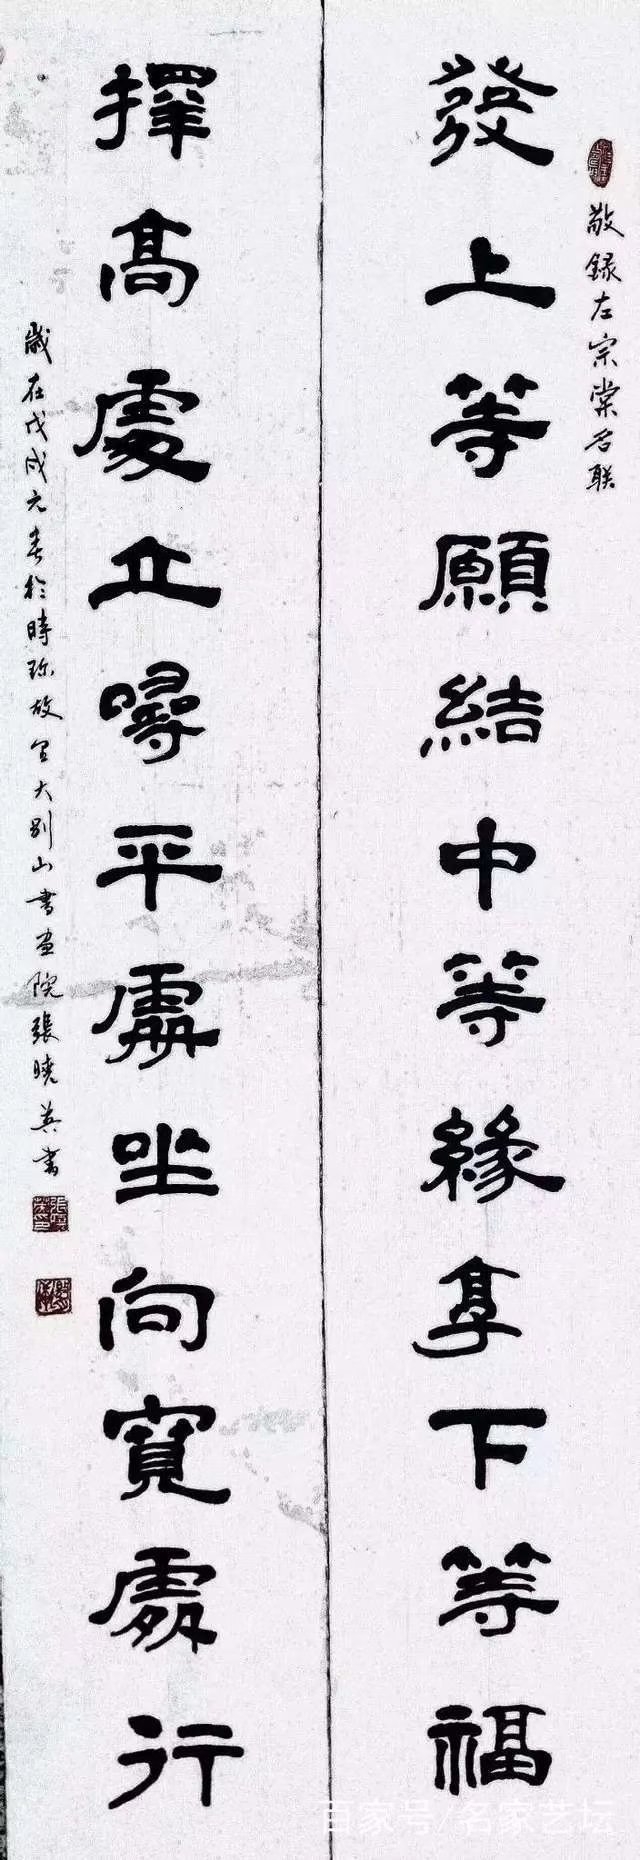 敬録左宗棠名联
發上等願結中等緣享下等福
擇高處立尋平處坐向寬處行
歲在戊戌元春於時珍故里大别山書画院張曉英書
百家号/名家艺坛